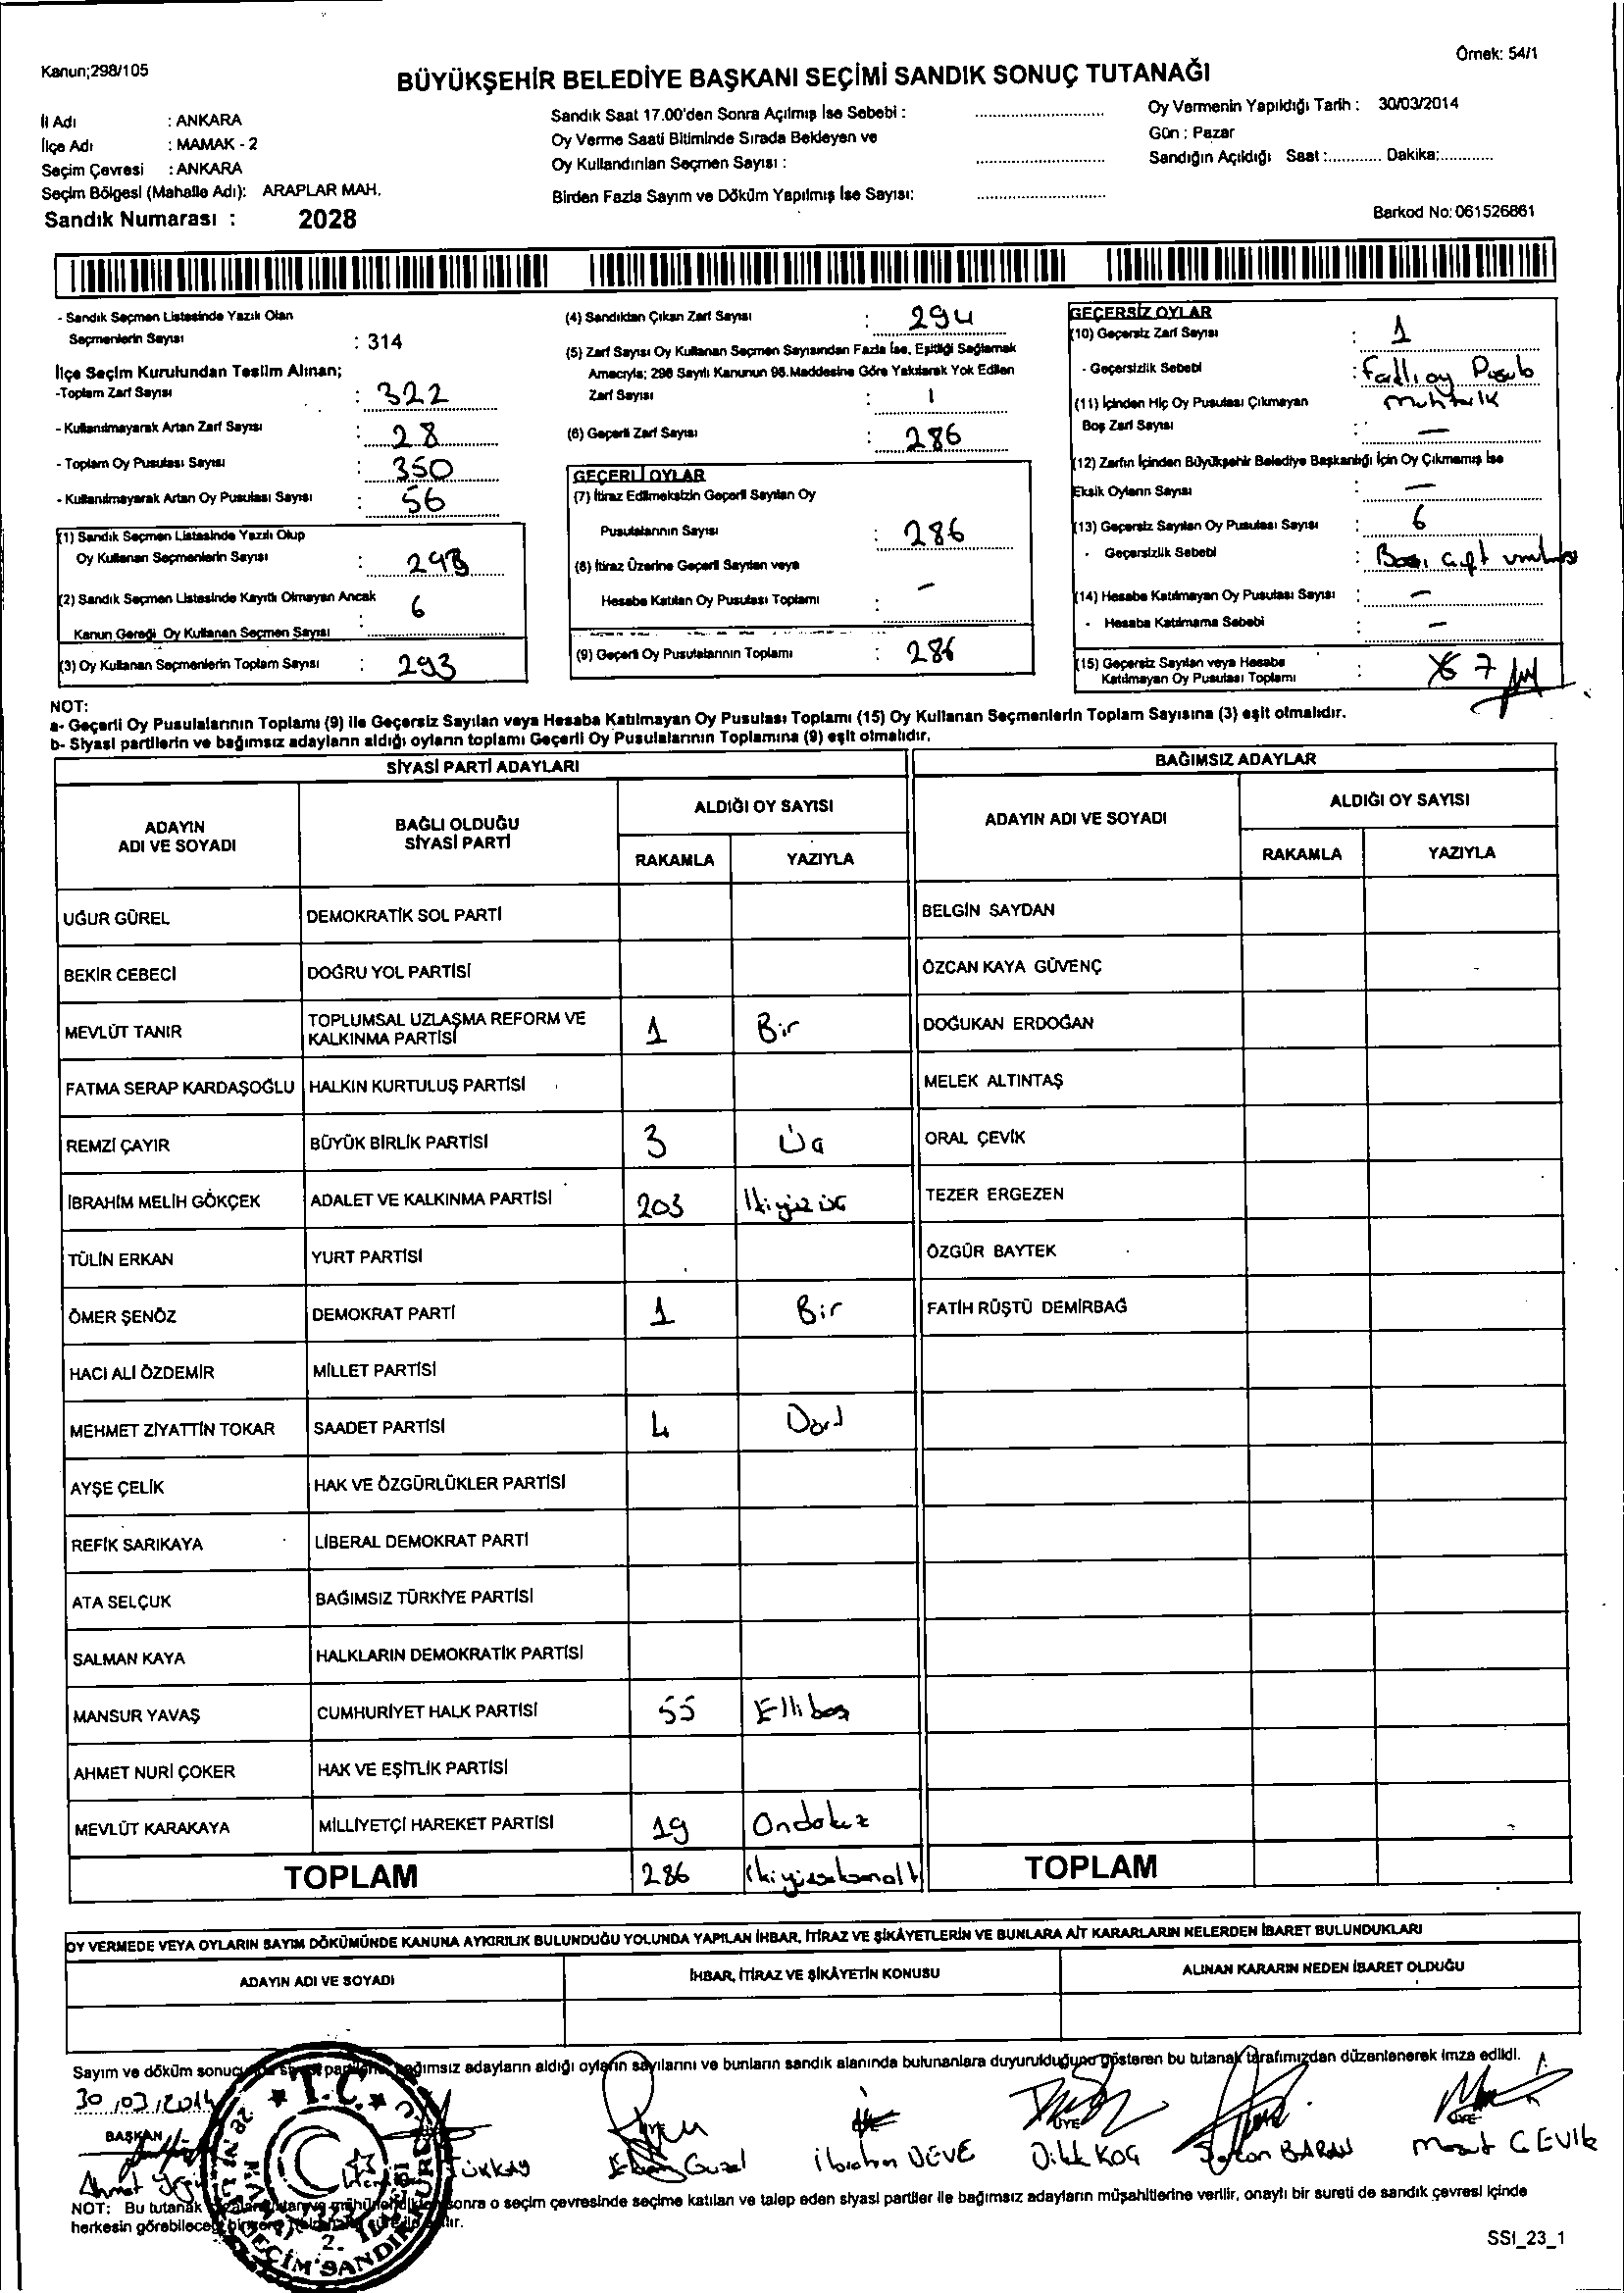 Kanun;298/105
Örnek: 54/1
BÜYÜKŞEHİR BELEDİYE BAŞKANI SEÇİMİ SANDIK SONUÇ TUTANAĞI
İl Adı : ANKARA
İlçe Adı : MAMAK - 2
Seçim Çevresi : ANKARA
Seçim Bölgesi (Mahalle Adı): ARAPLAR MAH.
Sandık Numarası : 2028
Sandık Saat 17.00'den Sonra Açılmış İse Sebebi :
Oy Verme Saati Bitiminde Sırada Bekleyen ve
Oy Kullandırılan Seçmen Sayısı :
Birden Fazla Sayım ve Döküm Yapılmış İse Sayısı:
Oy Vermenin Yapıldığı Tarih : 30/03/2014
Gün : Pazar
Sandığın Açıldığı Saat :............ Dakika:............
Barkod No: 061526861
- Sandık Seçmen Listesinde Yazılı Olan
Seçmenlerin Sayısı : 314
İlçe Seçim Kurulundan Teslim Alınan;
-Toplam Zarf Sayısı : 322
- Kullanılmayarak Artan Zarf Sayısı : 28
- Toplam Oy Pusulası Sayısı : 350
- Kullanılmayarak Artan Oy Pusulası Sayısı : 56
(1) Sandık Seçmen Listesinde Yazılı Olup
Oy Kullanan Seçmenlerin Sayısı :
(2) Sandık Seçmen Listesinde Kayıtlı Olmayan Ancak
Kanun Gereği Oy Kullanan Seçmen Sayısı : 6
(3) Oy Kullanan Seçmenlerin Toplam Sayısı : 293
(4) Sandıktan Çıkan Zarf Sayısı : 294
(5) Zarf Sayısı Oy Kullanan Seçmen Sayısından Fazla İse, Eşitliği Sağlamak
Amacıyla; 298 Sayılı Kanunun 98.Maddesine Göre Yakılarak Yok Edilen
Zarf Sayısı : 1
(6) Geçerli Zarf Sayısı : 286
GEÇERLİ OYLAR
(7) İtiraz Edilmeksizin Geçerli Sayılan Oy
Pusulalarının Sayısı : 286
(8) İtiraz Üzerine Geçerli Sayılan veya
Hesaba Katılan Oy Pusulası Toplamı : -
(9) Geçerli Oy Pusulalarının Toplamı : 286
GEÇERSİZ OYLAR
(10) Geçersiz Zarf Sayısı : 1
- Geçersizlik Sebebi :
(11) İçinden Hiç Oy Pusulası Çıkmayan
Boş Zarf Sayısı : -
(12) Zarfın İçinden Büyükşehir Belediye Başkanlığı İçin Oy Çıkmamış İse
Eksik Oyların Sayısı : -
(13) Geçersiz Sayılan Oy Pusulası Sayısı : 6
- Geçersizlik Sebebi :
(14) Hesaba Katılmayan Oy Pusulası Sayısı : -
- Hesaba Katılmama Sebebi : -
(15) Geçersiz Sayılan veya Hesaba
Katılmayan Oy Pusulası Toplamı : 7
NOT:
a- Geçerli Oy Pusulalarının Toplamı (9) ile Geçersiz Sayılan veya Hesaba Katılmayan Oy Pusulası Toplamı (15) Oy Kullanan Seçmenlerin Toplam Sayısına (3) eşit olmalıdır.
b- Siyasi partilerin ve bağımsız adayların aldığı oyların toplamı Geçerli Oy Pusulalarının Toplamına (9) eşit olmalıdır.
SİYASİ PARTİ ADAYLARI
BAĞIMSIZ ADAYLAR
ADAYIN ADI VE SOYADI
BAĞLI OLDUĞU SİYASİ PARTİ
ALDIĞI OY SAYISI
RAKAMLA YAZIYLA
ADAYIN ADI VE SOYADI
ALDIĞI OY SAYISI
RAKAMLA YAZIYLA
UĞUR GÜREL DEMOKRATİK SOL PARTİ BELGİN SAYDAN
BEKİR CEBECİ DOĞRU YOL PARTİSİ ÖZCAN KAYA GÜVENÇ
MEVLÜT TANIR TOPLUMSAL UZLAŞMA REFORM VE KALKINMA PARTİSİ 1 Bir DOĞUKAN ERDOĞAN
FATMA SERAP KARDAŞOĞLU HALKIN KURTULUŞ PARTİSİ MELEK ALTINTAŞ
REMZİ ÇAYIR BÜYÜK BİRLİK PARTİSİ 3 Üç ORAL ÇEVİK
İBRAHİM MELİH GÖKÇEK ADALET VE KALKINMA PARTİSİ 203 İkiyüz üç TEZER ERGEZEN
TÜLİN ERKAN YURT PARTİSİ ÖZGÜR BAYTEK
ÖMER ŞENÖZ DEMOKRAT PARTİ 1 Bir FATİH RÜŞTÜ DEMİRBAĞ
HACI ALİ ÖZDEMİR MİLLET PARTİSİ
MEHMET ZİYATTİN TOKAR SAADET PARTİSİ 4 Dört
AYŞE ÇELİK HAK VE ÖZGÜRLÜKLER PARTİSİ
REFİK SARIKAYA LİBERAL DEMOKRAT PARTİ
ATA SELÇUK BAĞIMSIZ TÜRKİYE PARTİSİ
SALMAN KAYA HALKLARIN DEMOKRATİK PARTİSİ
MANSUR YAVAŞ CUMHURİYET HALK PARTİSİ 55 Ellibeş
AHMET NURİ ÇOKER HAK VE EŞİTLİK PARTİSİ
MEVLÜT KARAKAYA MİLLİYETÇİ HAREKET PARTİSİ 19 Ondokuz
TOPLAM 286 TOPLAM
OY VERMEDE VEYA OYLARIN SAYIM DÖKÜMÜNDE KANUNA AYKIRILIK BULUNDUĞU YOLUNDA YAPILAN İHBAR, İTİRAZ VE ŞİKÂYETLERİN VE BUNLARA AİT KARARLARIN NELERDEN İBARET BULUNDUKLARI
ADAYIN ADI VE SOYADI İHBAR, İTİRAZ VE ŞİKÂYETİN KONUSU ALINAN KARARIN NEDEN İBARET OLDUĞU
Sayım ve döküm bağımsız adayların aldığı oyların sayılarını ve bunların sandık alanında bulunanlara duyurulduğunu gösteren bu tutanak tarafımızdan düzenlenerek imza edildi.
30/03/2014
T.C.
BAŞKAN ÜYE ÜYE
Ahmet Güzel İbrahim DEVE Dilek KOÇ BARAN Mesut ÇEVİK
NOT: Bu tutanak sonra o seçim çevresinde seçime katılan ve talep eden siyasi partiler ile bağımsız adayların müşahitlerine verilir, onaylı bir sureti de sandık çevresi içinde
herkesin görebileceği
SSI_23_1